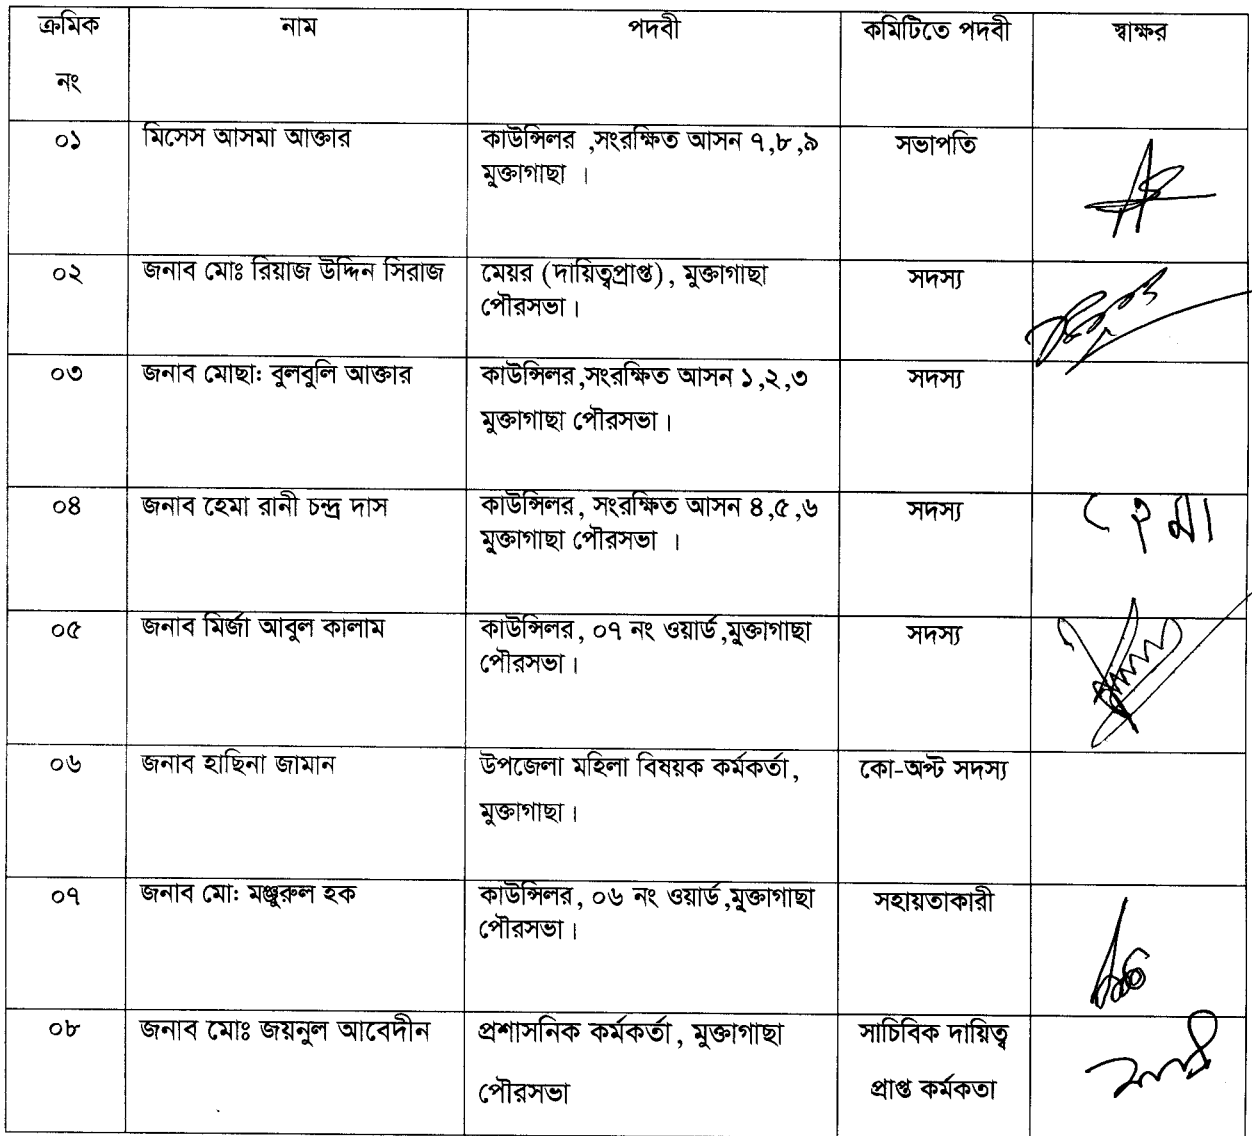 ক্রমিক নাম পদবী কমিটিতে পদবী স্বাক্ষর
নং
০১ মিসেস আসমা আক্তার কাউন্সিলর ,সংরক্ষিত আসন ৭,৮,৯ সভাপতি
মুক্তাগাছা ।
০২ জনাব মোঃ রিয়াজ উদ্দিন সিরাজ মেয়র (দায়িত্বপ্রাপ্ত), মুক্তাগাছা সদস্য
পৌরসভা।
০৩ জনাব মোছা: বুলবুলি আক্তার কাউন্সিলর,সংরক্ষিত আসন ১,২,৩ সদস্য
মুক্তাগাছা পৌরসভা।
০৪ জনাব হেমা রানী চন্দ্র দাস কাউন্সিলর, সংরক্ষিত আসন ৪,৫,৬ সদস্য হেমা
মুক্তাগাছা পৌরসভা ।
০৫ জনাব মির্জা আবুল কালাম কাউন্সিলর, ০৭ নং ওয়ার্ড,মুক্তাগাছা সদস্য
পৌরসভা।
০৬ জনাব হাছিনা জামান উপজেলা মহিলা বিষয়ক কর্মকর্তা, কো-অপ্ট সদস্য
মুক্তাগাছা।
০৭ জনাব মো: মঞ্জুরুল হক কাউন্সিলর, ০৬ নং ওয়ার্ড,মুক্তাগাছা সহায়তাকারী
পৌরসভা।
০৮ জনাব মোঃ জয়নুল আবেদীন প্রশাসনিক কর্মকর্তা, মুক্তাগাছা সাচিবিক দায়িত্ব
পৌরসভা প্রাপ্ত কর্মকতা